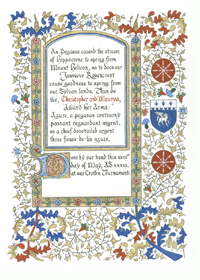 As Pegasus caused the stream
of Hippocrene to spring from
Mount Helicon, so to does our
Genevieve
cause goodness to spring from
our Sylvan lands. Thus do
We, Christopher and Maurya,
Award her Arms:
Azure, a pegasus contourny
passant reguardant argent,
on a chief dovetailed argent
three fleurs-de-lis azure.
Done by our hand this
day of May, AS
at our Crown Tournament